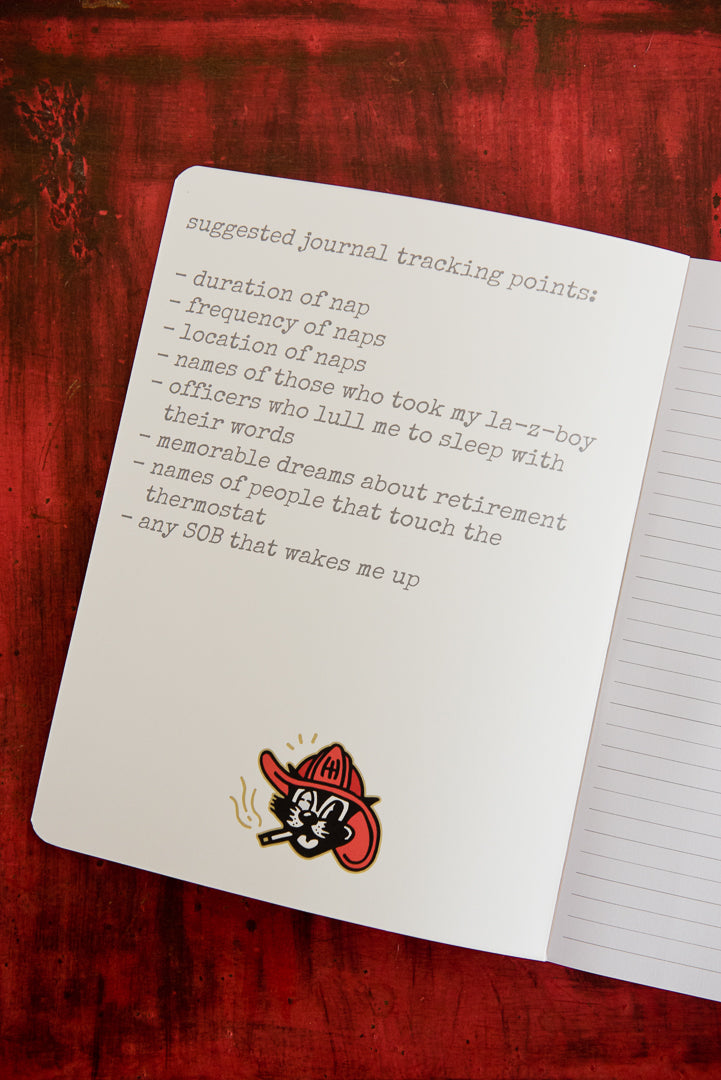 suggested journal tracking points:
- duration of nap
- frequency of naps
- location of naps
- names of those who took my la-z-boy
- officers who lull me to sleep with
their words
- memorable dreams about retirement
- names of people that touch the
thermostat
- any SOB that wakes me up